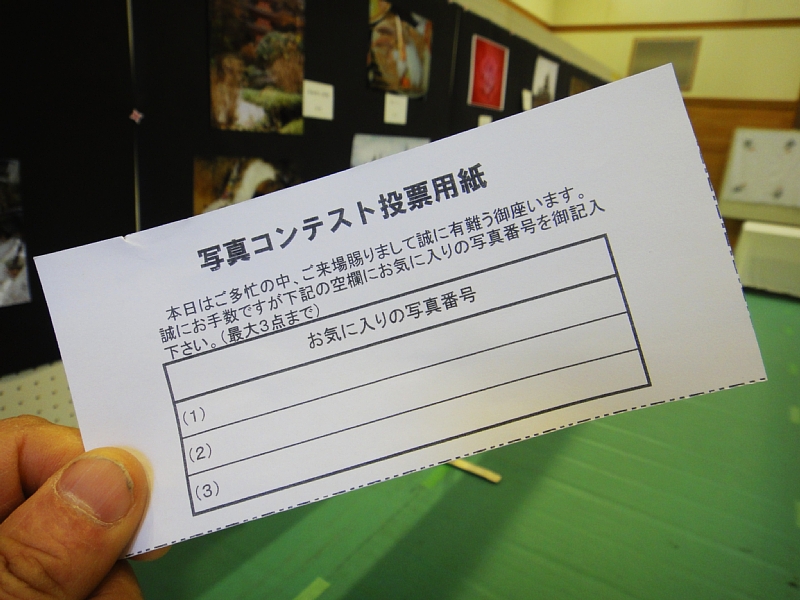 写真コンテスト投票用紙
本日はご多忙の中、ご来場賜りまして誠に有難う御座います。
誠にお手数ですが下記の空欄にお気に入りの写真番号を御記入
下さい。(最大3点まで)
お気に入りの写真番号
(1)
(2)
(3)